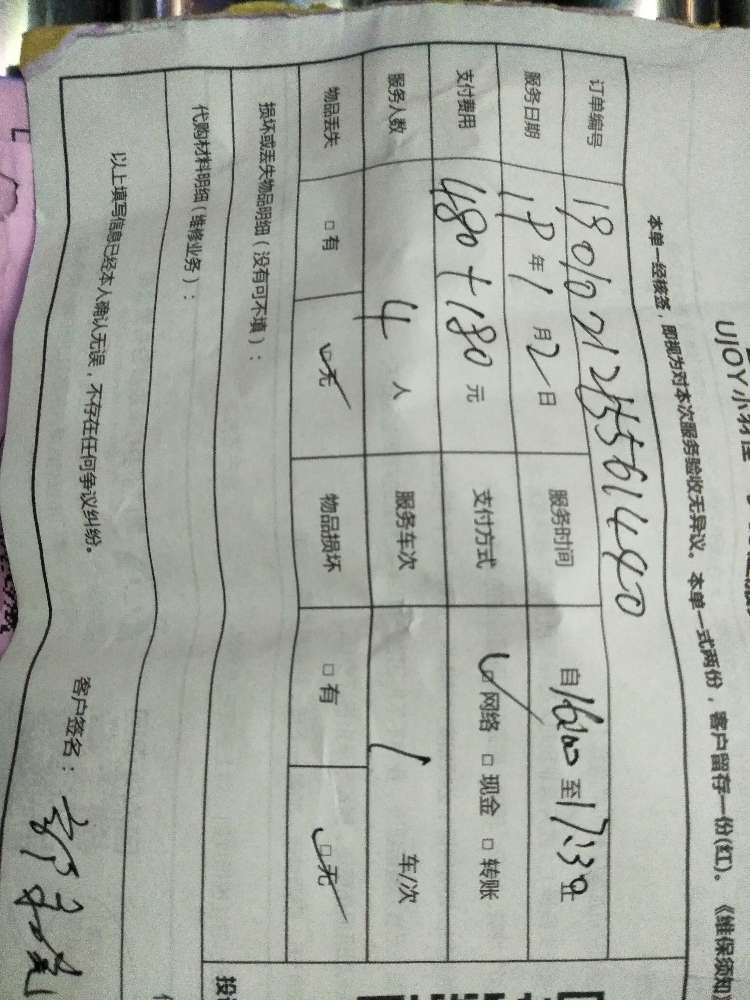 UJOY小羽佳
本单一经核签，即视为对本次服务验收无异议。本单一式两份，客户留存一份(红)。《维保须知》
订单编号 190102124556144​80
服务日期 19年1月2日 服务时间 自16:00至17:30止
支付费用 480+180元 支付方式 ☑网络 □现金 □转账
服务人数 4人 服务车次 1 车/次
物品丢失 □有 ☑无 物品损坏 □有 ☑无
损坏或丢失物品明细（没有可不填）：
代购材料明细（维修业务）：
以上填写信息已经本人确认无误，不存在任何争议纠纷。
客户签名：
投